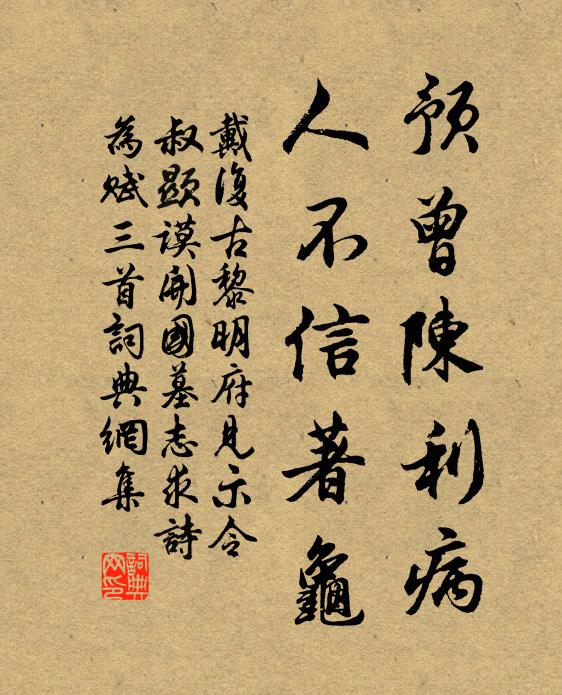 預曾陳利病
人不信著龜
戴復古黎明府見示令
叔顯謨開國墓志求詩
為賦三首詞典網集
詞典
网印